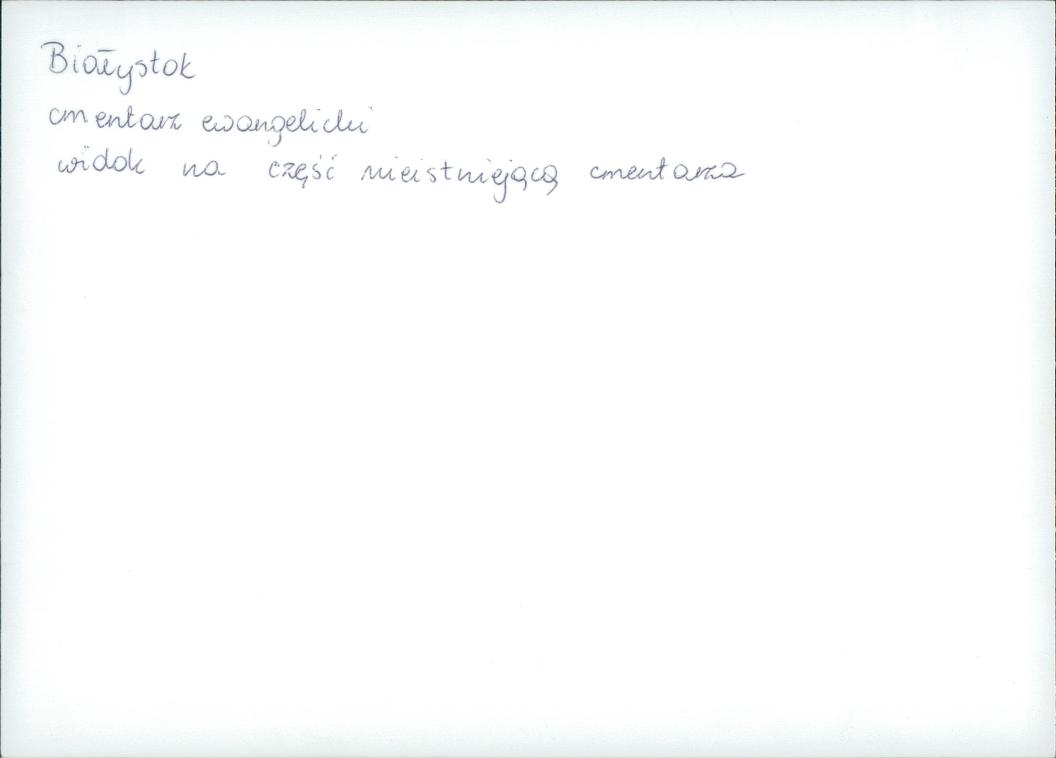 Białystok
cmentarz ewangelicki
widok na część nieistniejącą cmentarza